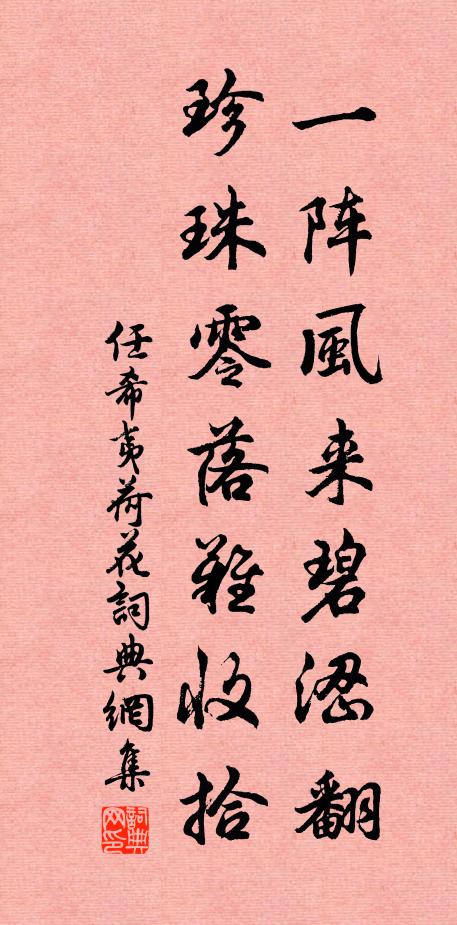 一阵風来碧涩翻
珍珠零落難收拾
任希夷荷花詞典網集
詞典网印